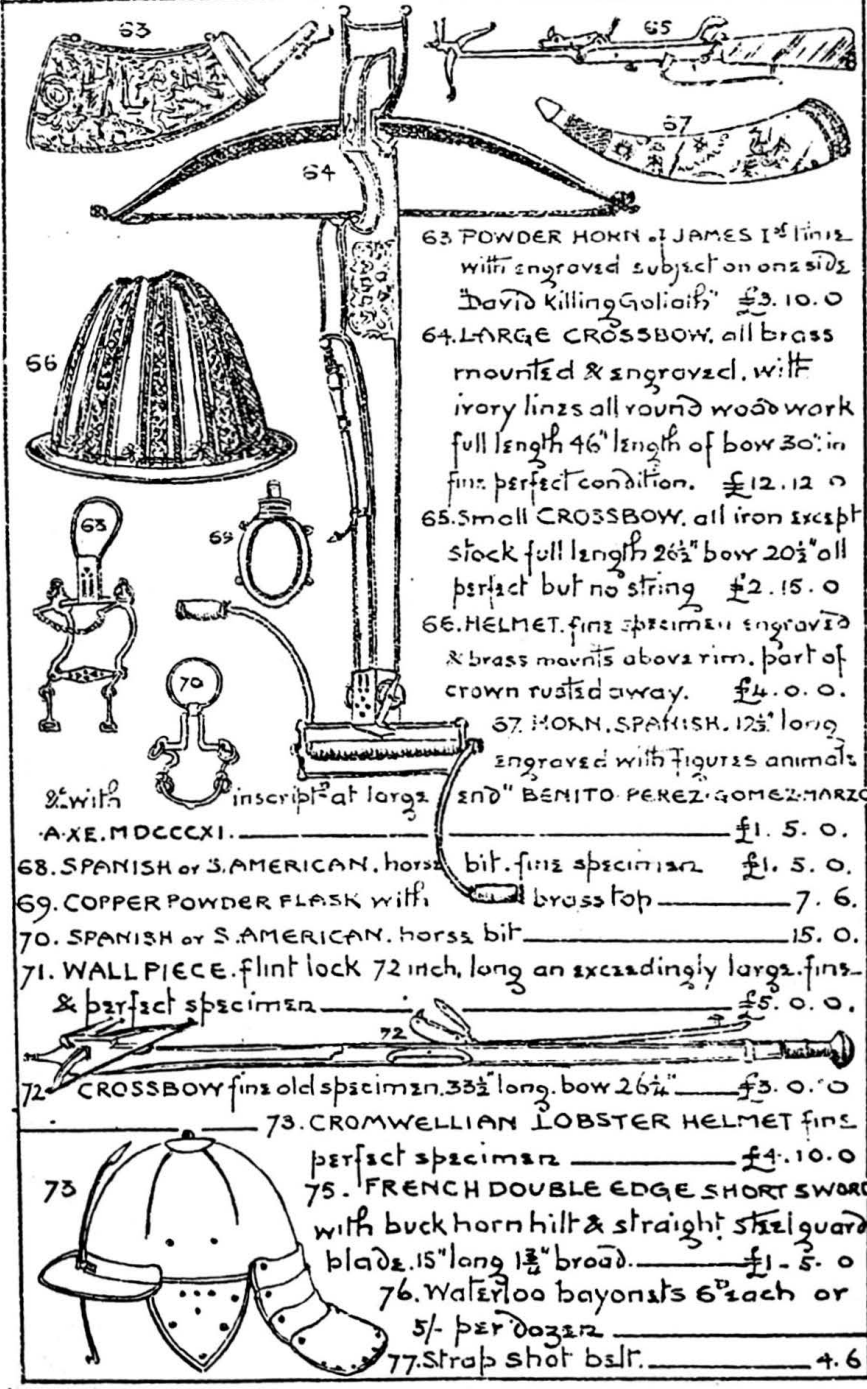 63
65
67
64
63 POWDER HORN of JAMES Ist time
with engraved subject on one side
"David Killing Goliath" £3.10.0
64. LARGE CROSSBOW. all brass
mounted & engraved. with
ivory lines all round wood work
full length 46" length of bow 30". in
fine perfect condition. £12.12 0
65. Small CROSSBOW. all iron except
stock full length 26½" bow 20½" all
perfect but no string £2.15.0
66. HELMET. fine specimen engraved
& brass mounts above rim. part of
crown rusted away. £4.0.0.
67. HORN. SPANISH. 12½" long
engraved with Figures animals
&c with inscriptn at large end" BENITO·PEREZ·GOMEZ·MARZO
·A·XE. MDCCCXI. £1. 5. 0.
66
68
69
70
68. SPANISH or S. AMERICAN. horse bit. fine specimen £1. 5. 0.
69. COPPER POWDER FLASK with brass top 7. 6.
70. SPANISH or S. AMERICAN. horse bit 15. 0.
71. WALL PIECE. flint lock 72 inch. long an exceedingly large. fine
& perfect specimen £5. 0. 0.
72
72 CROSSBOW fine old specimen. 33½" long. bow 26¼" £3. 0. 0
73. CROMWELLIAN LOBSTER HELMET fine
perfect specimen £4.10.0
73
75. FRENCH DOUBLE EDGE SHORT SWORD
with buck horn hilt & straight steel guard
blade. 15" long 1¾" broad. £1-5. 0
76. Waterloo bayonets 6D each or
5/- per dozen
77. Strap shot belt. 4.6